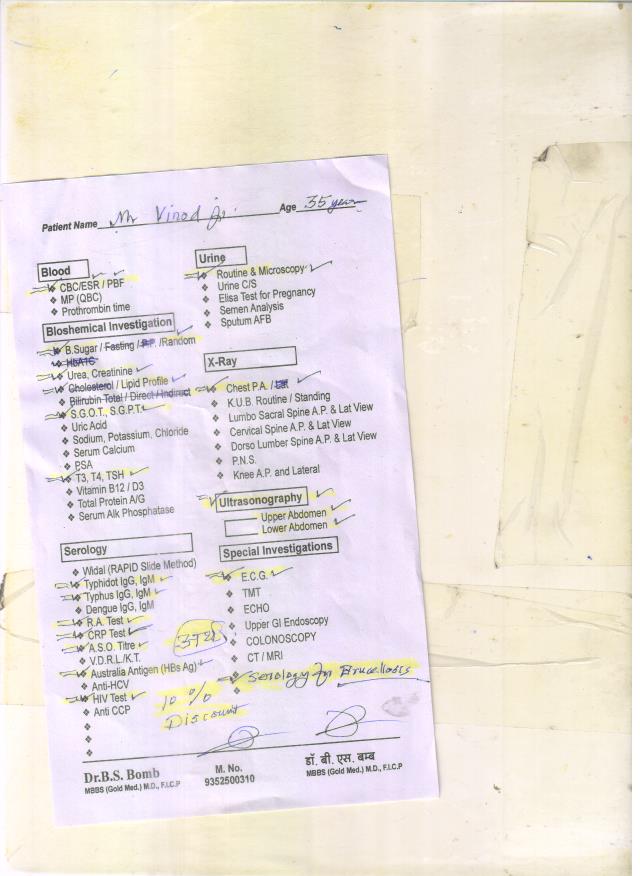 Patient Name Mr Vinod Jr. Age 35 year
Blood
CBC/ESR / PBF
MP (QBC)
Prothrombin time
Bloshemical Investigation
B.Sugar / Fasting / P.P. /Random
HbA1C
Urea, Creatinine
Cholesterol / Lipid Profile
Bilirubin Total / Direct / Indirect
S.G.O.T., S.G.P.T.
Uric Acid
Sodium, Potassium, Chloride
Serum Calcium
PSA
T3, T4, TSH
Vitamin B12 / D3
Total Protein A/G
Serum Alk Phosphatase
Serology
Widal (RAPID Slide Method)
Typhidot IgG, IgM
Typhus IgG, IgM
Dengue IgG, IgM
R.A. Test
CRP Test
A.S.O. Titre
V.D.R.L./K.T.
Australia Antigen (HBs Ag)
Anti-HCV
HIV Test
Anti CCP
10 %
Discount
Urine
Routine & Microscopy
Urine C/S
Elisa Test for Pregnancy
Semen Analysis
Sputum AFB
X-Ray
Chest P.A. /
K.U.B. Routine / Standing
Lumbo Sacral Spine A.P. & Lat View
Cervical Spine A.P. & Lat View
Dorso Lumber Spine A.P. & Lat View
P.N.S.
Knee A.P. and Lateral
Ultrasonography
Upper Abdomen
Lower Abdomen
Special Investigations
E.C.G.
TMT
ECHO
Upper GI Endoscopy
COLONOSCOPY
CT / MRI
Serology for Brucellosis
Dr.B.S. Bomb
MBBS (Gold Med.) M.D., F.I.C.P
M. No.
9352500310
डॉ. बी. एस. बम्ब
MBBS (Gold Med.) M.D., F.I.C.P